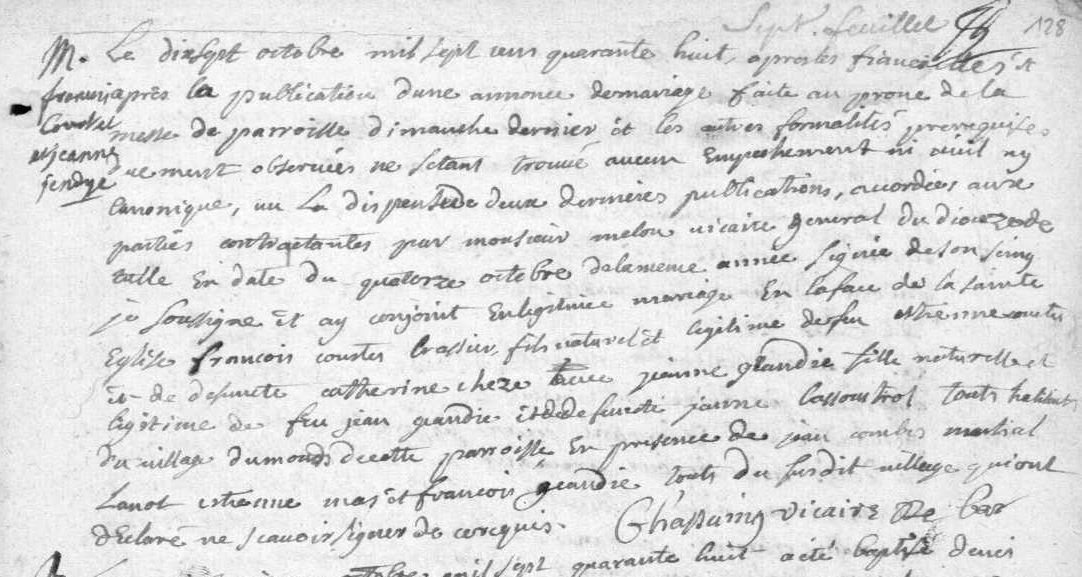 Sept. feuillet 128
M. Le dixsept octobre mil sept cens quarante huit, apres les fiancailles et
francois
Coustet
et jeanne
jendye
après la publication dune annonce de mariage faite au prone de la
messe de parroisse dimanche dernier et les autres formalités prerequises
duement observées ne setant trouvé aucun Empechement ni civil ny
canonique, vu La dispense de deux dernieres publications, accordées aux
parties contractantes par monsieur melon vicaire general du dioceze de
tulle En date du quatorze octobre de la meme année signée de son seing
je soussigne et ay conjoint En legitime mariage En la face de la sainte
Eglise francois coustes brassier, fils naturel et legitime de feu etienne coustes
et de defuncte catherine cheze avec jeanne geandie fille naturelle et
legitime de feu jean geandie et de defuncte jeanne touts habitants
du village du mons de cette parroisse En presence de jean combes martial
Lanot etienne mas et francois geandie touts du susdit village qui ont
dEclaré ne scavoir signer de ce requis. Chassaing vicaire De bar
octobre mil sept quarante huit a eté baptisé denis